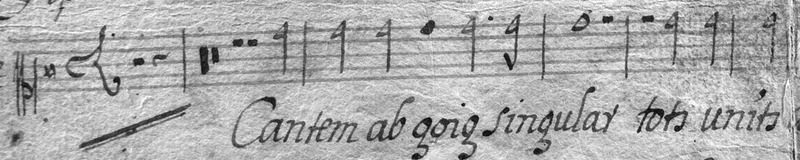 Cantem ab goig singular tots units